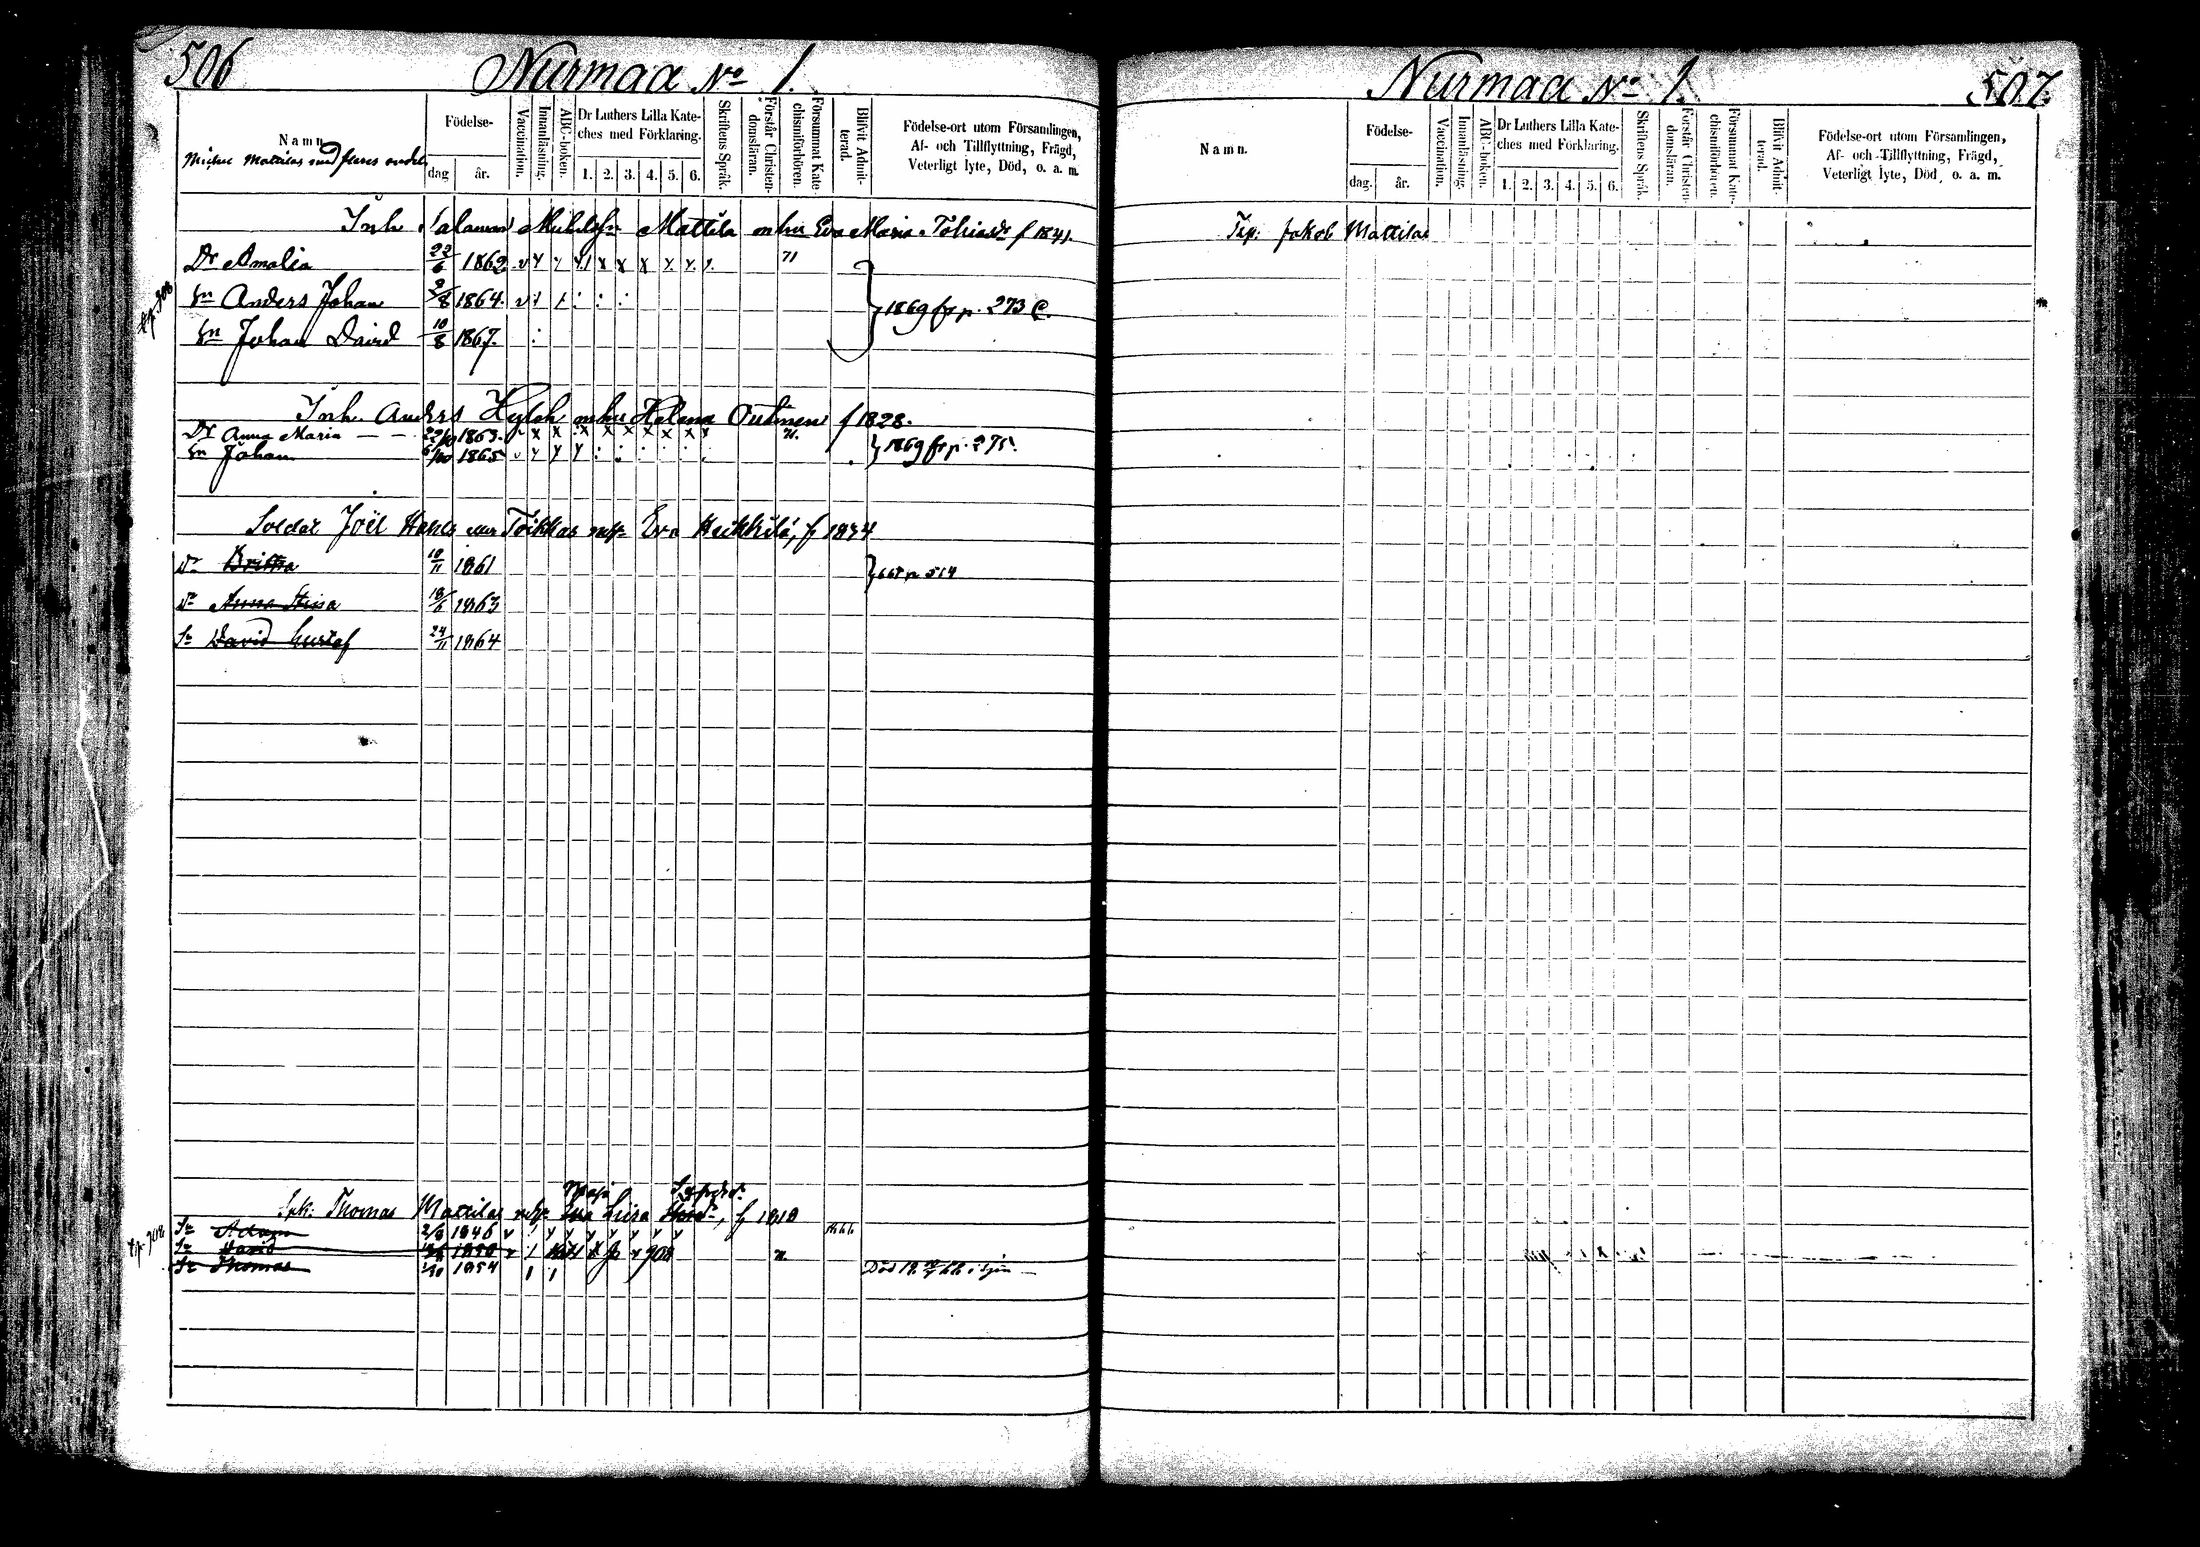 506
Nurmaa No 1.
Namn
Födelse-
dag
år.
Vaccination.
Innanläsning.
ABC-boken.
Dr Luthers Lilla Kate-
ches med Förklaring.
1. 2. 3. 4. 5. 6.
Skriftens Språk.
Förstår Christen-
domsläran.
Försummat Kate-
chismiförhören.
Blifvit Admit-
terad.
Födelse-ort utom Församlingen,
Af- och Tillflyttning, Frägd,
Veterligt lyte, Död, o. a. m.
Inh. Salomon Mattila m hu Eva Maria Tobiasdr f 1841.
Dr Amalia 22/6 1862 71
Sn Anders Johan 2/8 1864. 1869 fr p. 273
Sn Johan David 10/8 1867.
Inh. Anders m hu Helena Outinen f 1828.
Dr Anna Maria 1863. 71.
Sn Johan 1865 1869 fr p. 275.
Soldat Joël Toikkas Eva Heikkilä, f 1834
dr Britta 10/11 1861 514
dr Anna Stina 18/6 1863
Sn David Gustaf 24/11 1864
Thomas Mattilas Maja Luisa, f 1818
Sn Adam 1846
Sn David 1850
Sn Thomas 1854 Död
Nurmaa No 1.
507.
Namn.
Födelse-
dag.
år.
Vaccination.
Innanläsning.
ABC-boken.
Dr Luthers Lilla Kate-
ches med Förklaring.
1. 2. 3. 4. 5. 6.
Skriftens Språk.
Förstår Christen-
domsläran.
Försummat Kate-
chismiförhören.
Blifvit Admit-
terad.
Födelse-ort utom Församlingen,
Af- och Tillflyttning, Frägd,
Veterligt lyte, Död, o. a. m.
Jakob Mattilas